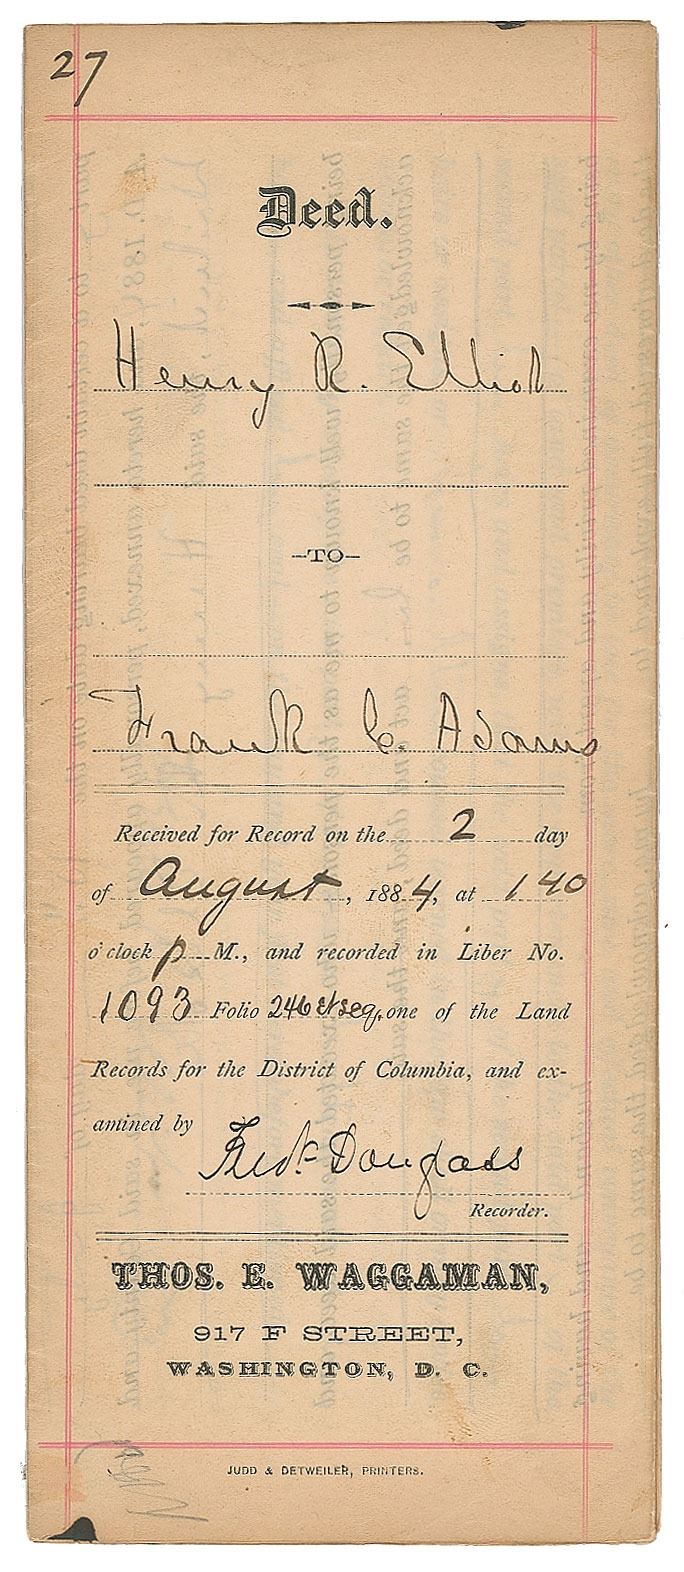 27
Deed.
Henry R. Elliot
-TO-
Frank C. Adams
Received for Record on the 2 day
of August, 1884, at 1 40
o'clock p M., and recorded in Liber No.
1093 Folio 246 et seq, one of the Land
Records for the District of Columbia, and ex-
amined by
Fredk Douglass
Recorder.
THOS. E. WAGGAMAN,
917 F STREET,
WASHINGTON, D. C.
JUDD & DETWEILER, PRINTERS.